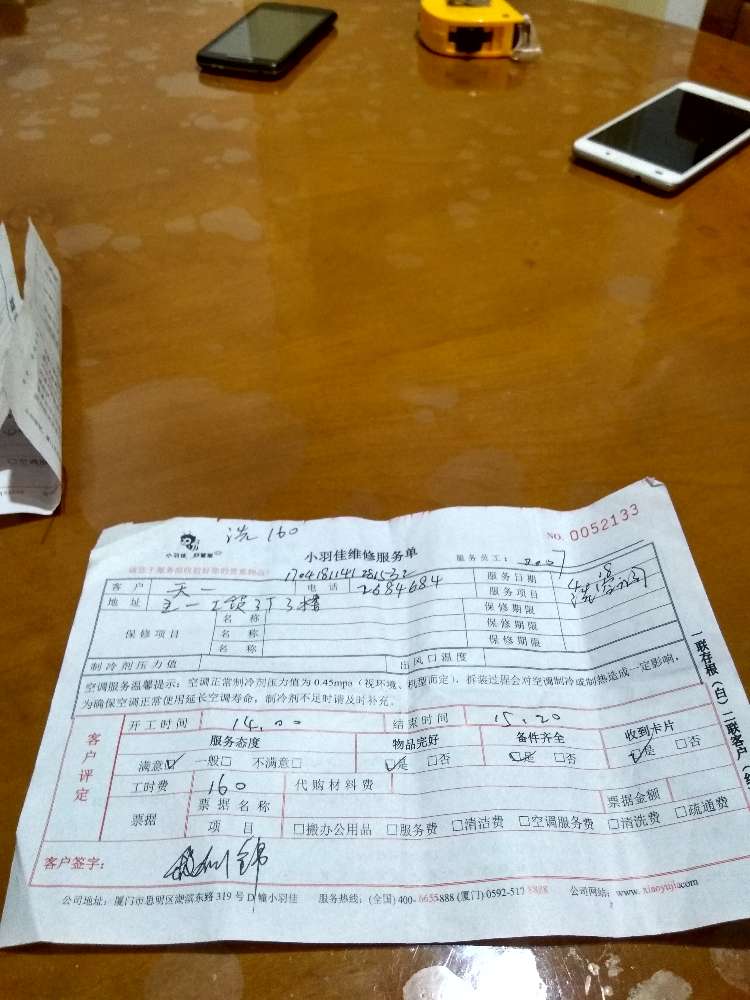 洗 160
NO. 0052133
小羽佳 好管家
小羽佳维修服务单
服务员工:
请您于服务前收捡好您的贵重物品!
1704181141281532
客户 天一
电话 2684684
服务日期 4.18
地址
服务项目
保修项目
名称
名称
名称
保修期限
保修期限
保修期限
制冷剂压力值
出风口温度
空调服务温馨提示:空调正常制冷剂压力值为 0.45mpa(视环境、机型而定),拆装过程会对空调制冷或制热造成一定影响,
为确保空调正常使用延长空调寿命,制冷剂不足时请及时补充。
开工时间 14.00
结束时间 15.20
客户评定
服务态度
物品完好
备件齐全
收到卡片
满意☑ 一般□ 不满意□
☑是 □否
☑是 □否
☑是 □否
工时费 160
代购材料费
票据
票据名称
票据金额
项目 □搬办公用品 □服务费 □清洁费 □空调服务费 □清洗费 □疏通费
客户签字:
公司地址:厦门市思明区湖滨东路 319 号 D 幢小羽佳 服务热线:(全国) 400-6655888 (厦门) 0592-5178888 公司网站:www.xiaoyujia.com
一联存根(白)二联客户